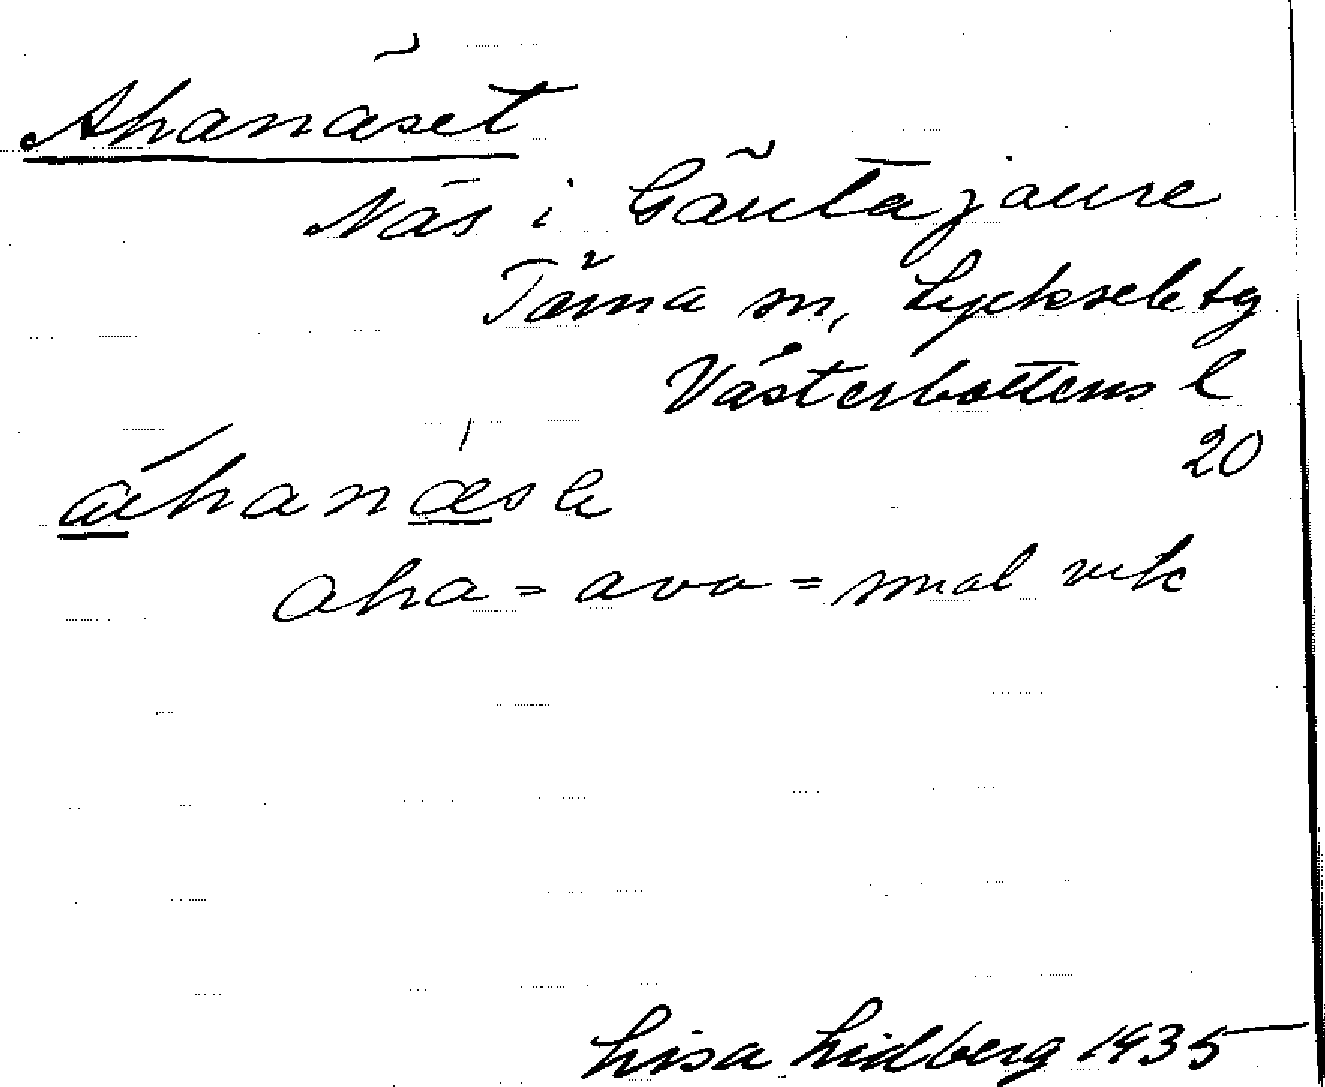 Ahanäset
Näs i Gäutajaure
Tärna sn, Lycksele tg
Västerbottens l
20
áhanǽsə
aha = ava = smal vik
Lisa Lidberg 1935